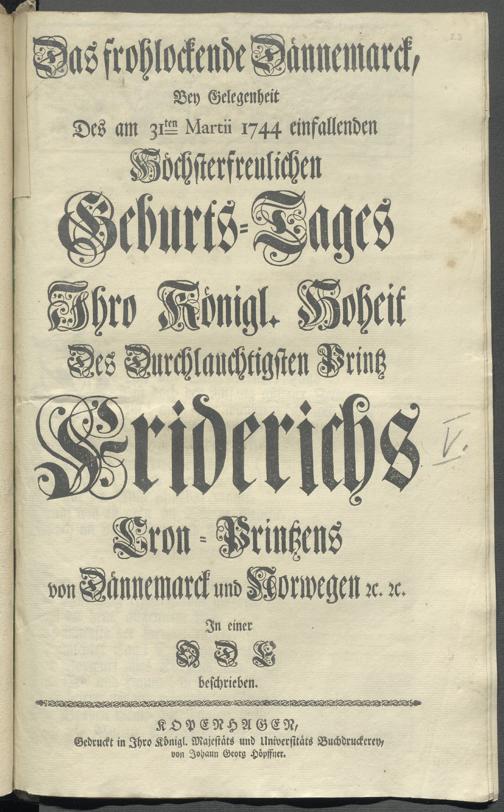 Das frohlockende Dännemarck,
Bey Gelegenheit
Des am 31ten Martii 1744 einfallenden
Höchsterfreulichen
Geburts-Tages
Ihro Königl. Hoheit
Des Durchlauchtigsten Printz
Friderichs
V.
Cron-Printzens
von Dännemarck und Norwegen ꝛc. ꝛc.
In einer
ODE
beschrieben.
KOPENHAGEN,
Gedruckt in Ihro Königl. Majestäts und Universitäts Buchdruckerey,
von Johann Georg Höpffner.